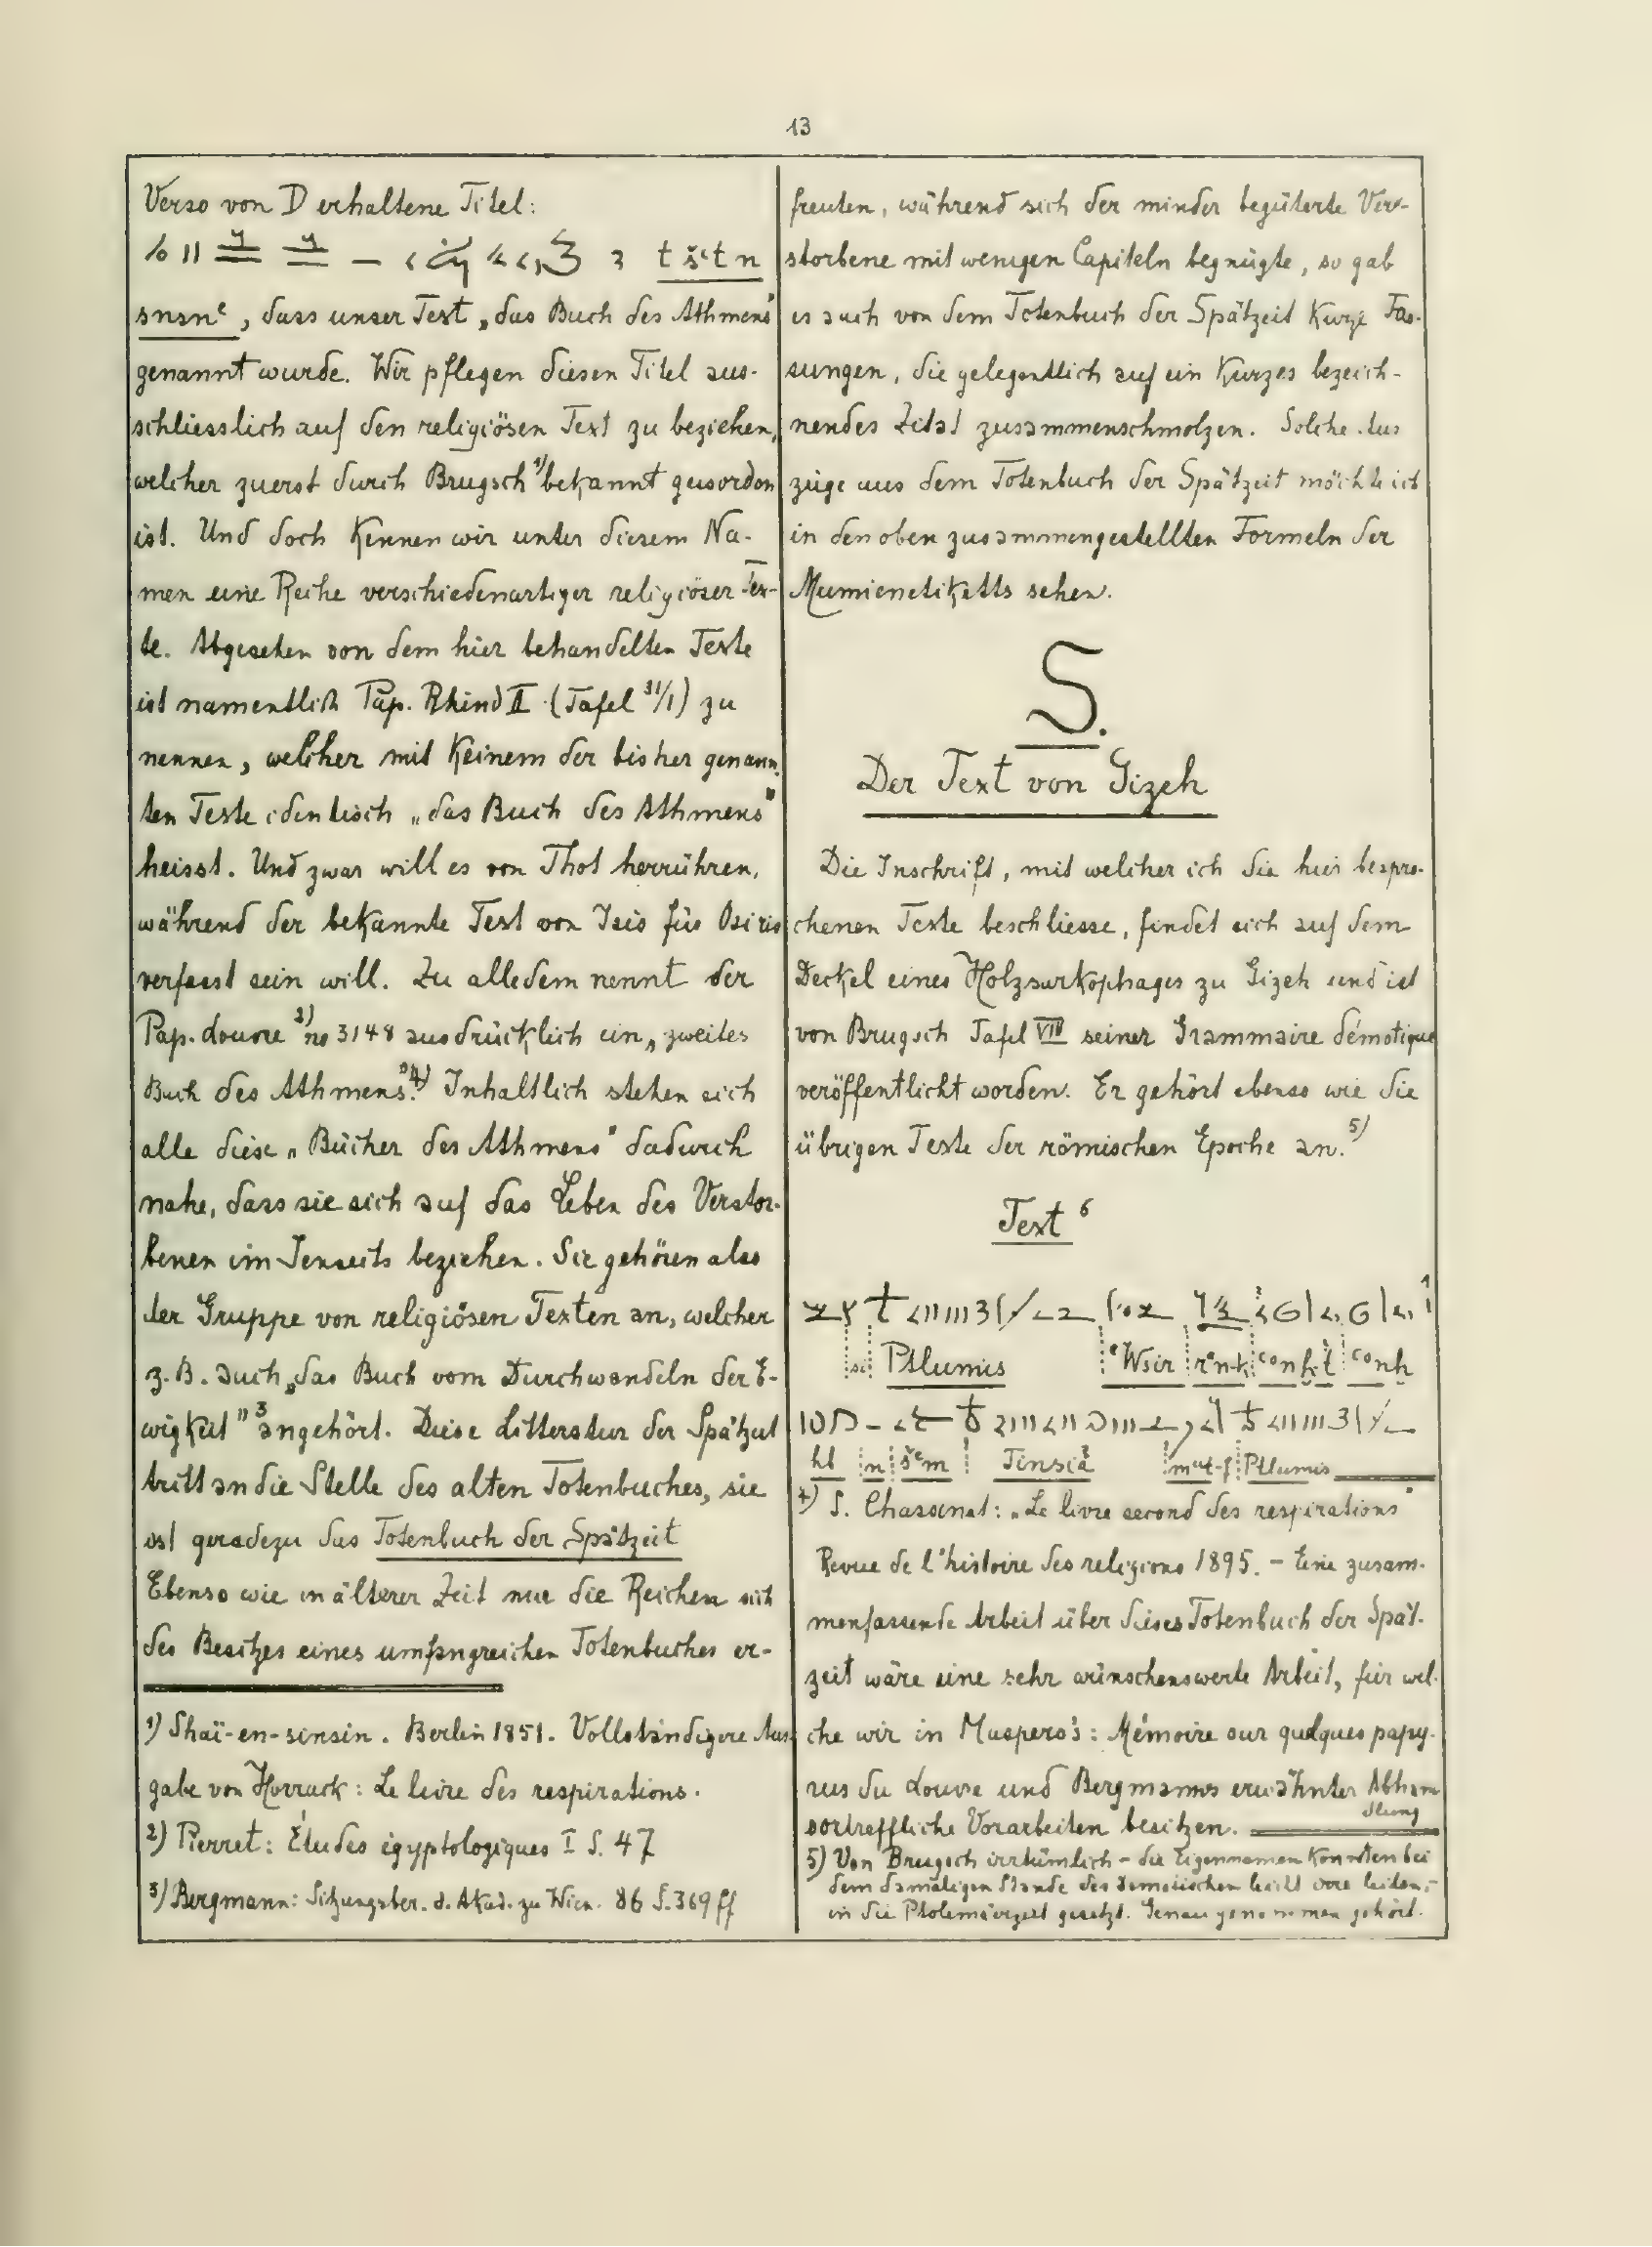 13
Verso von D erhaltene Titel:
t šʿt n
snsnᵉ, dass unser Text „das Buch des Athmens"
genannt wurde. Wir pflegen diesen Titel aus-
schliesslich auf den religiösen Text zu beziehen,
welcher zuerst durch Brugsch 1) bekannt geworden
ist. Und doch kennen wir unter diesem Na-
men eine Reihe verschiedenartiger religiöser Tex-
te. Abgesehen von dem hier behandelten Texte
ist namentlich Pap. Rhind II (Tafel 11/1) zu
nennen, welcher mit keinem der bisher genann-
ten Texte identisch „das Buch des Athmens"
heisst. Und zwar will es von Thot herrühren,
während der bekannte Text von Isis für Osiris
verfasst sein will. Zu alledem nennt der
Pap. Louvre 2) no 3148 ausdrücklich ein „zweites
Buch des Athmens". 4) Inhaltlich stehen sich
alle diese „Bücher des Athmens" dadurch
nahe, dass sie sich auf das Leben des Verstor-
benen im Jenseits beziehen. Sie gehören also
der Gruppe von religiösen Texten an, welcher
z. B. auch „das Buch vom Durchwandeln der E-
wigkeit" 3 angehört. Diese Litteratur der Spätzeit
tritt an die Stelle des alten Totenbuches, sie
ist geradezu das Totenbuch der Spätzeit
Ebenso wie in älterer Zeit nur die Reichen sich
des Besitzes eines umfangreichen Totenbuches er-
1) Shaï-en-sinsin. Berlin 1851. Vollständigere Aus-
gabe von Horrack: Le livre des respirations.
2) Pierret: Études égyptologiques I S. 47
3) Bergmann: Sitzungsber. d. Akad. zu Wien. 86 S. 369 ff
freuten, während sich der minder begüterte Ver-
storbene mit wenigen Capiteln begnügte, so gab
es auch von dem Totenbuch der Spätzeit kurze Fas-
sungen, die gelegentlich auf ein kurzes bezeich-
nendes Zitat zusammenschmolzen. Solche Aus
züge aus dem Totenbuch der Spätzeit möchte ich
in den oben zusammengestellten Formeln der
Mumienetiketts sehen.
S.
Der Text von Gizeh
Die Inschrift, mit welcher ich die hier bespro-
chenen Texte beschliesse, findet sich auf dem
Deckel eines Holzsarkophages zu Gizeh und ist
von Brugsch Tafel VIII seiner Grammaire démotique
veröffentlicht worden. Er gehört ebenso wie die
übrigen Texte der römischen Epoche an. 5)
Text 6
Ptlumis Wsir
n Tinsiȝ Ptlumis
4) S. Chassinat: „Le livre second des respirations"
Revue de l'histoire des religions 1895. – Eine zusam-
menfassende Arbeit über dieses Totenbuch der Spät-
zeit wäre eine sehr wünschenswerte Arbeit, für wel-
che wir in Maspero's: Mémoire sur quelques papy-
rus du Louvre und Bergmanns erwähnter Abhan
dlung
vortreffliche Vorarbeiten besitzen.
5) Von Brugsch irrtümlich – die Eigennamen konnten bei
dem damaligen Stande des demotischen
in die Ptolemäerzeit gesetzt. Genau genommen gehört